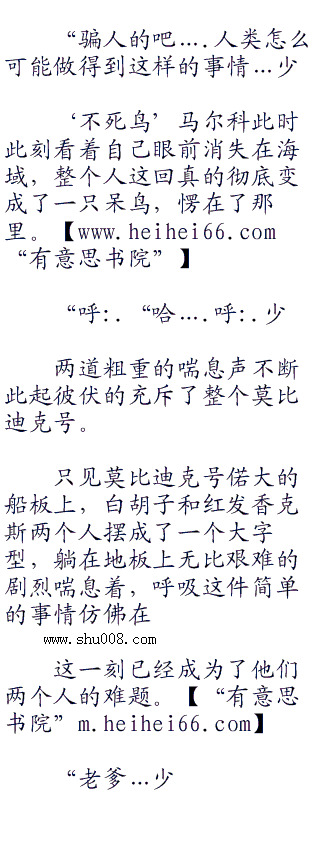 “骗人的吧….人类怎么
可能做得到这样的事情…少
‘不死鸟’马尔科此时
此刻看着自己眼前消失在海
域，整个人这回真的彻底变
成了一只呆鸟，愣在了那
里。【www.heihei66.com
“有意思书院”】
“呼:.“哈….呼:.少
两道粗重的喘息声不断
此起彼伏的充斥了整个莫比
迪克号。
只见莫比迪克号偌大的
船板上，白胡子和红发香克
斯两个人摆成了一个大字
型，躺在地板上无比艰难的
剧烈喘息着，呼吸这件简单
的事情仿佛在
www.shu008.com
这一刻已经成为了他们
两个人的难题。【“有意思
书院”m.heihei66.com】
“老爹…少